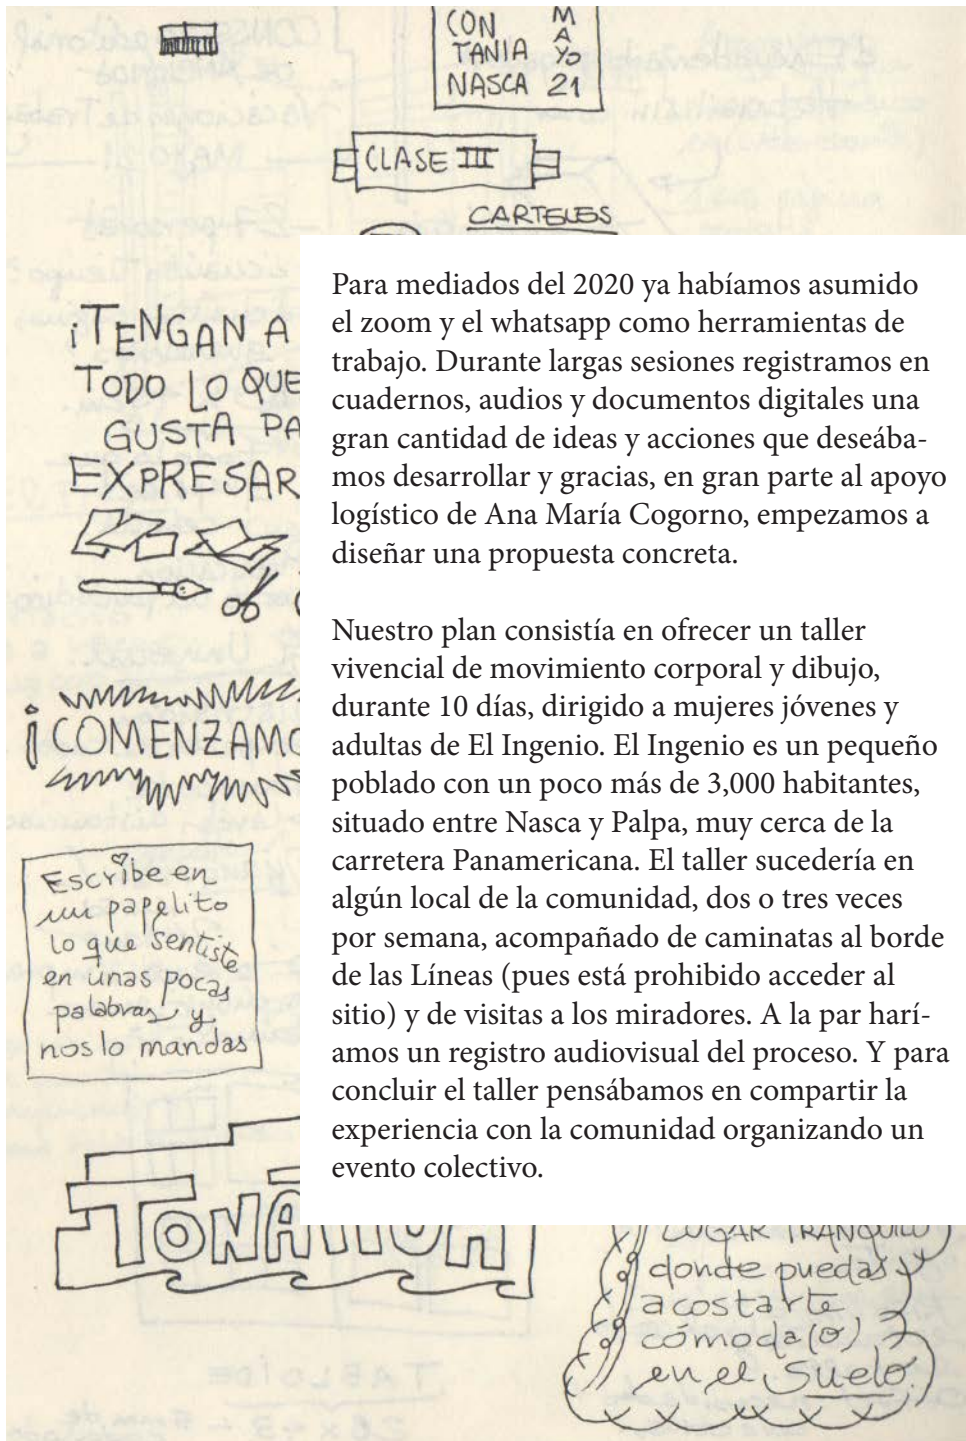 CON
TANIA
NASCA
MAYO
21
CLASE III
CARTELES
¡TENGAN A
TODO LO QUE
GUSTA PA
EXPRESAR
¡COMENZAMO
Escribe en
un papelito
lo que sentiste
en unas pocas
palabras y
nos lo mandas
Para mediados del 2020 ya habíamos asumido
el zoom y el whatsapp como herramientas de
trabajo. Durante largas sesiones registramos en
cuadernos, audios y documentos digitales una
gran cantidad de ideas y acciones que deseába-
mos desarrollar y gracias, en gran parte al apoyo
logístico de Ana María Cogorno, empezamos a
diseñar una propuesta concreta.
Nuestro plan consistía en ofrecer un taller
vivencial de movimiento corporal y dibujo,
durante 10 días, dirigido a mujeres jóvenes y
adultas de El Ingenio. El Ingenio es un pequeño
poblado con un poco más de 3,000 habitantes,
situado entre Nasca y Palpa, muy cerca de la
carretera Panamericana. El taller sucedería en
algún local de la comunidad, dos o tres veces
por semana, acompañado de caminatas al borde
de las Líneas (pues está prohibido acceder al
sitio) y de visitas a los miradores. A la par harí-
amos un registro audiovisual del proceso. Y para
concluir el taller pensábamos en compartir la
experiencia con la comunidad organizando un
evento colectivo.
LUGAR TRANQUILO
donde puedas
acostarte
cómoda(o)
en el suelo.